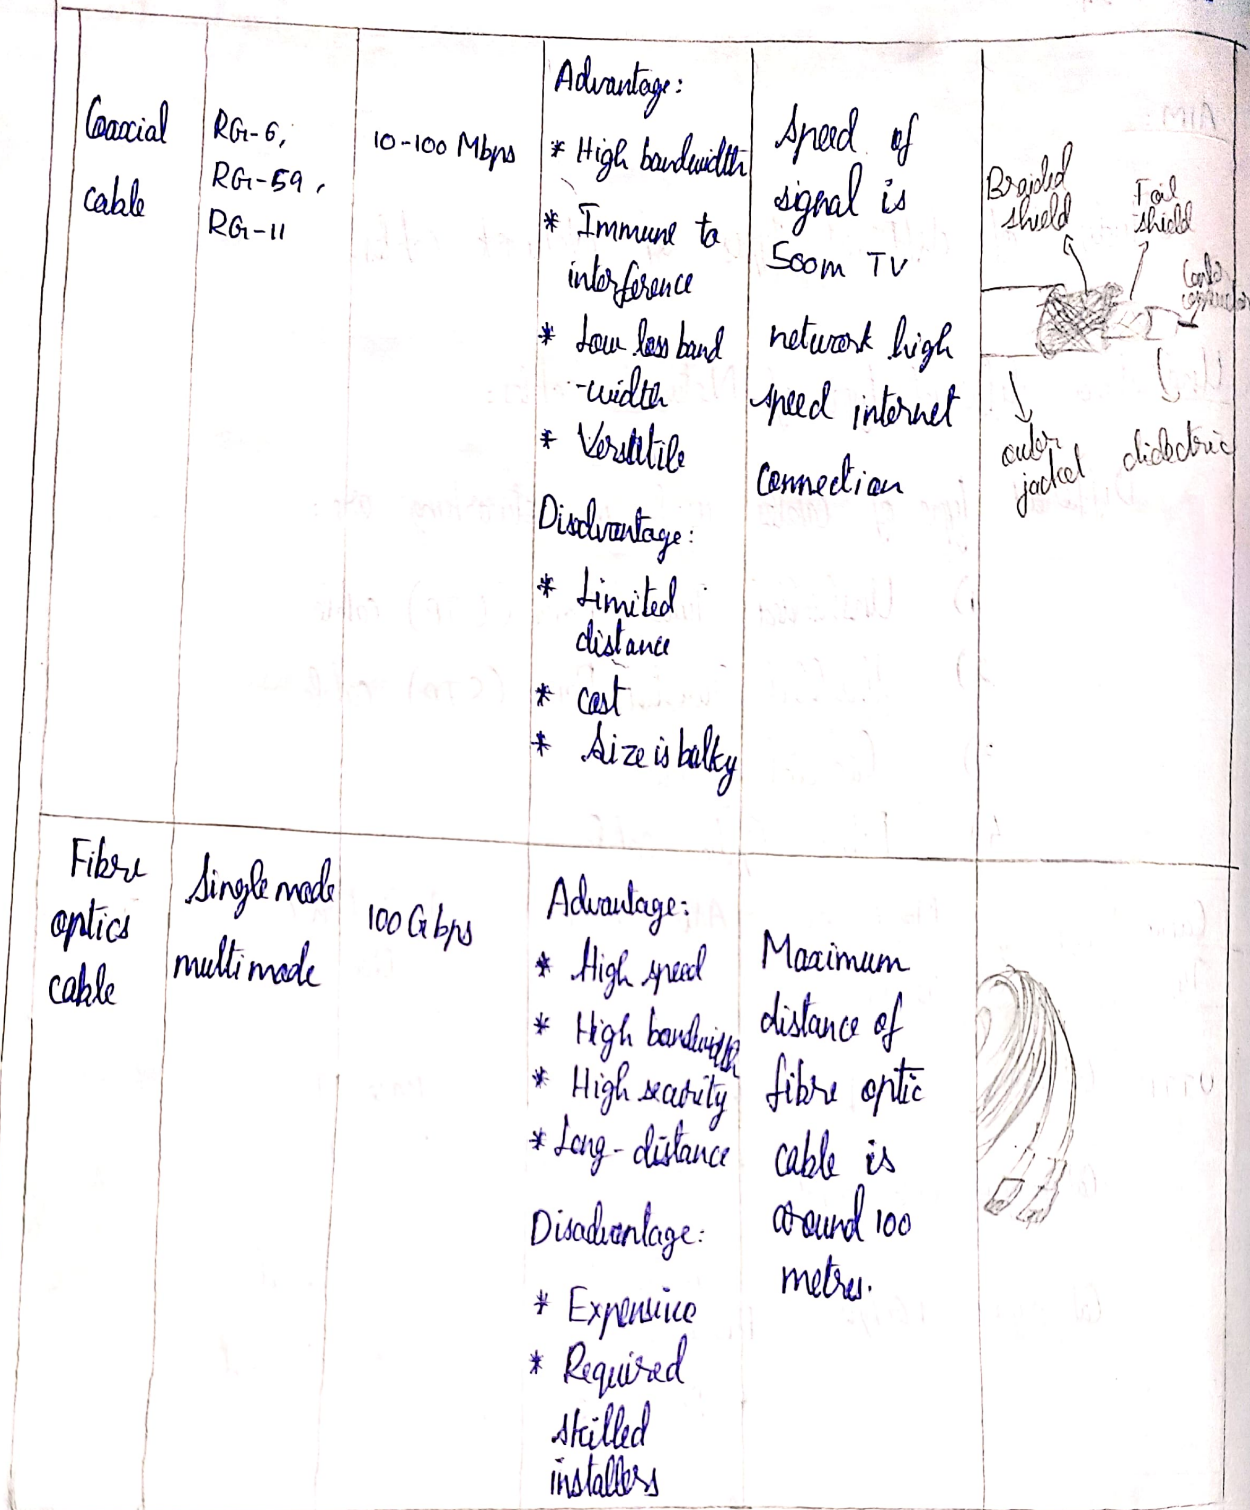 Coaxial
cable
RG-6,
RG-59,
RG-11
10-100 Mbps
Advantage:
* High bandwidth
* Immune to
interference
* Low loss band
-width
* Verstile
Disadvantage:
* Limited
distance
* cost
* Size is bulky
Speed of
signal is
500m TV
network high
speed internet
connection
Braided
shield
Foil
shield
outer
jacket
dielectric
Fibre
optics
cable
Single mode
multimode
100 Gbps
Advantage:
* High speed
* High bandwidth
* High security
* Long-distance
Disadvantage:
* Expensive
* Required
skilled
installers
Maximum
distance of
fibre optic
cable is
around 100
metres.